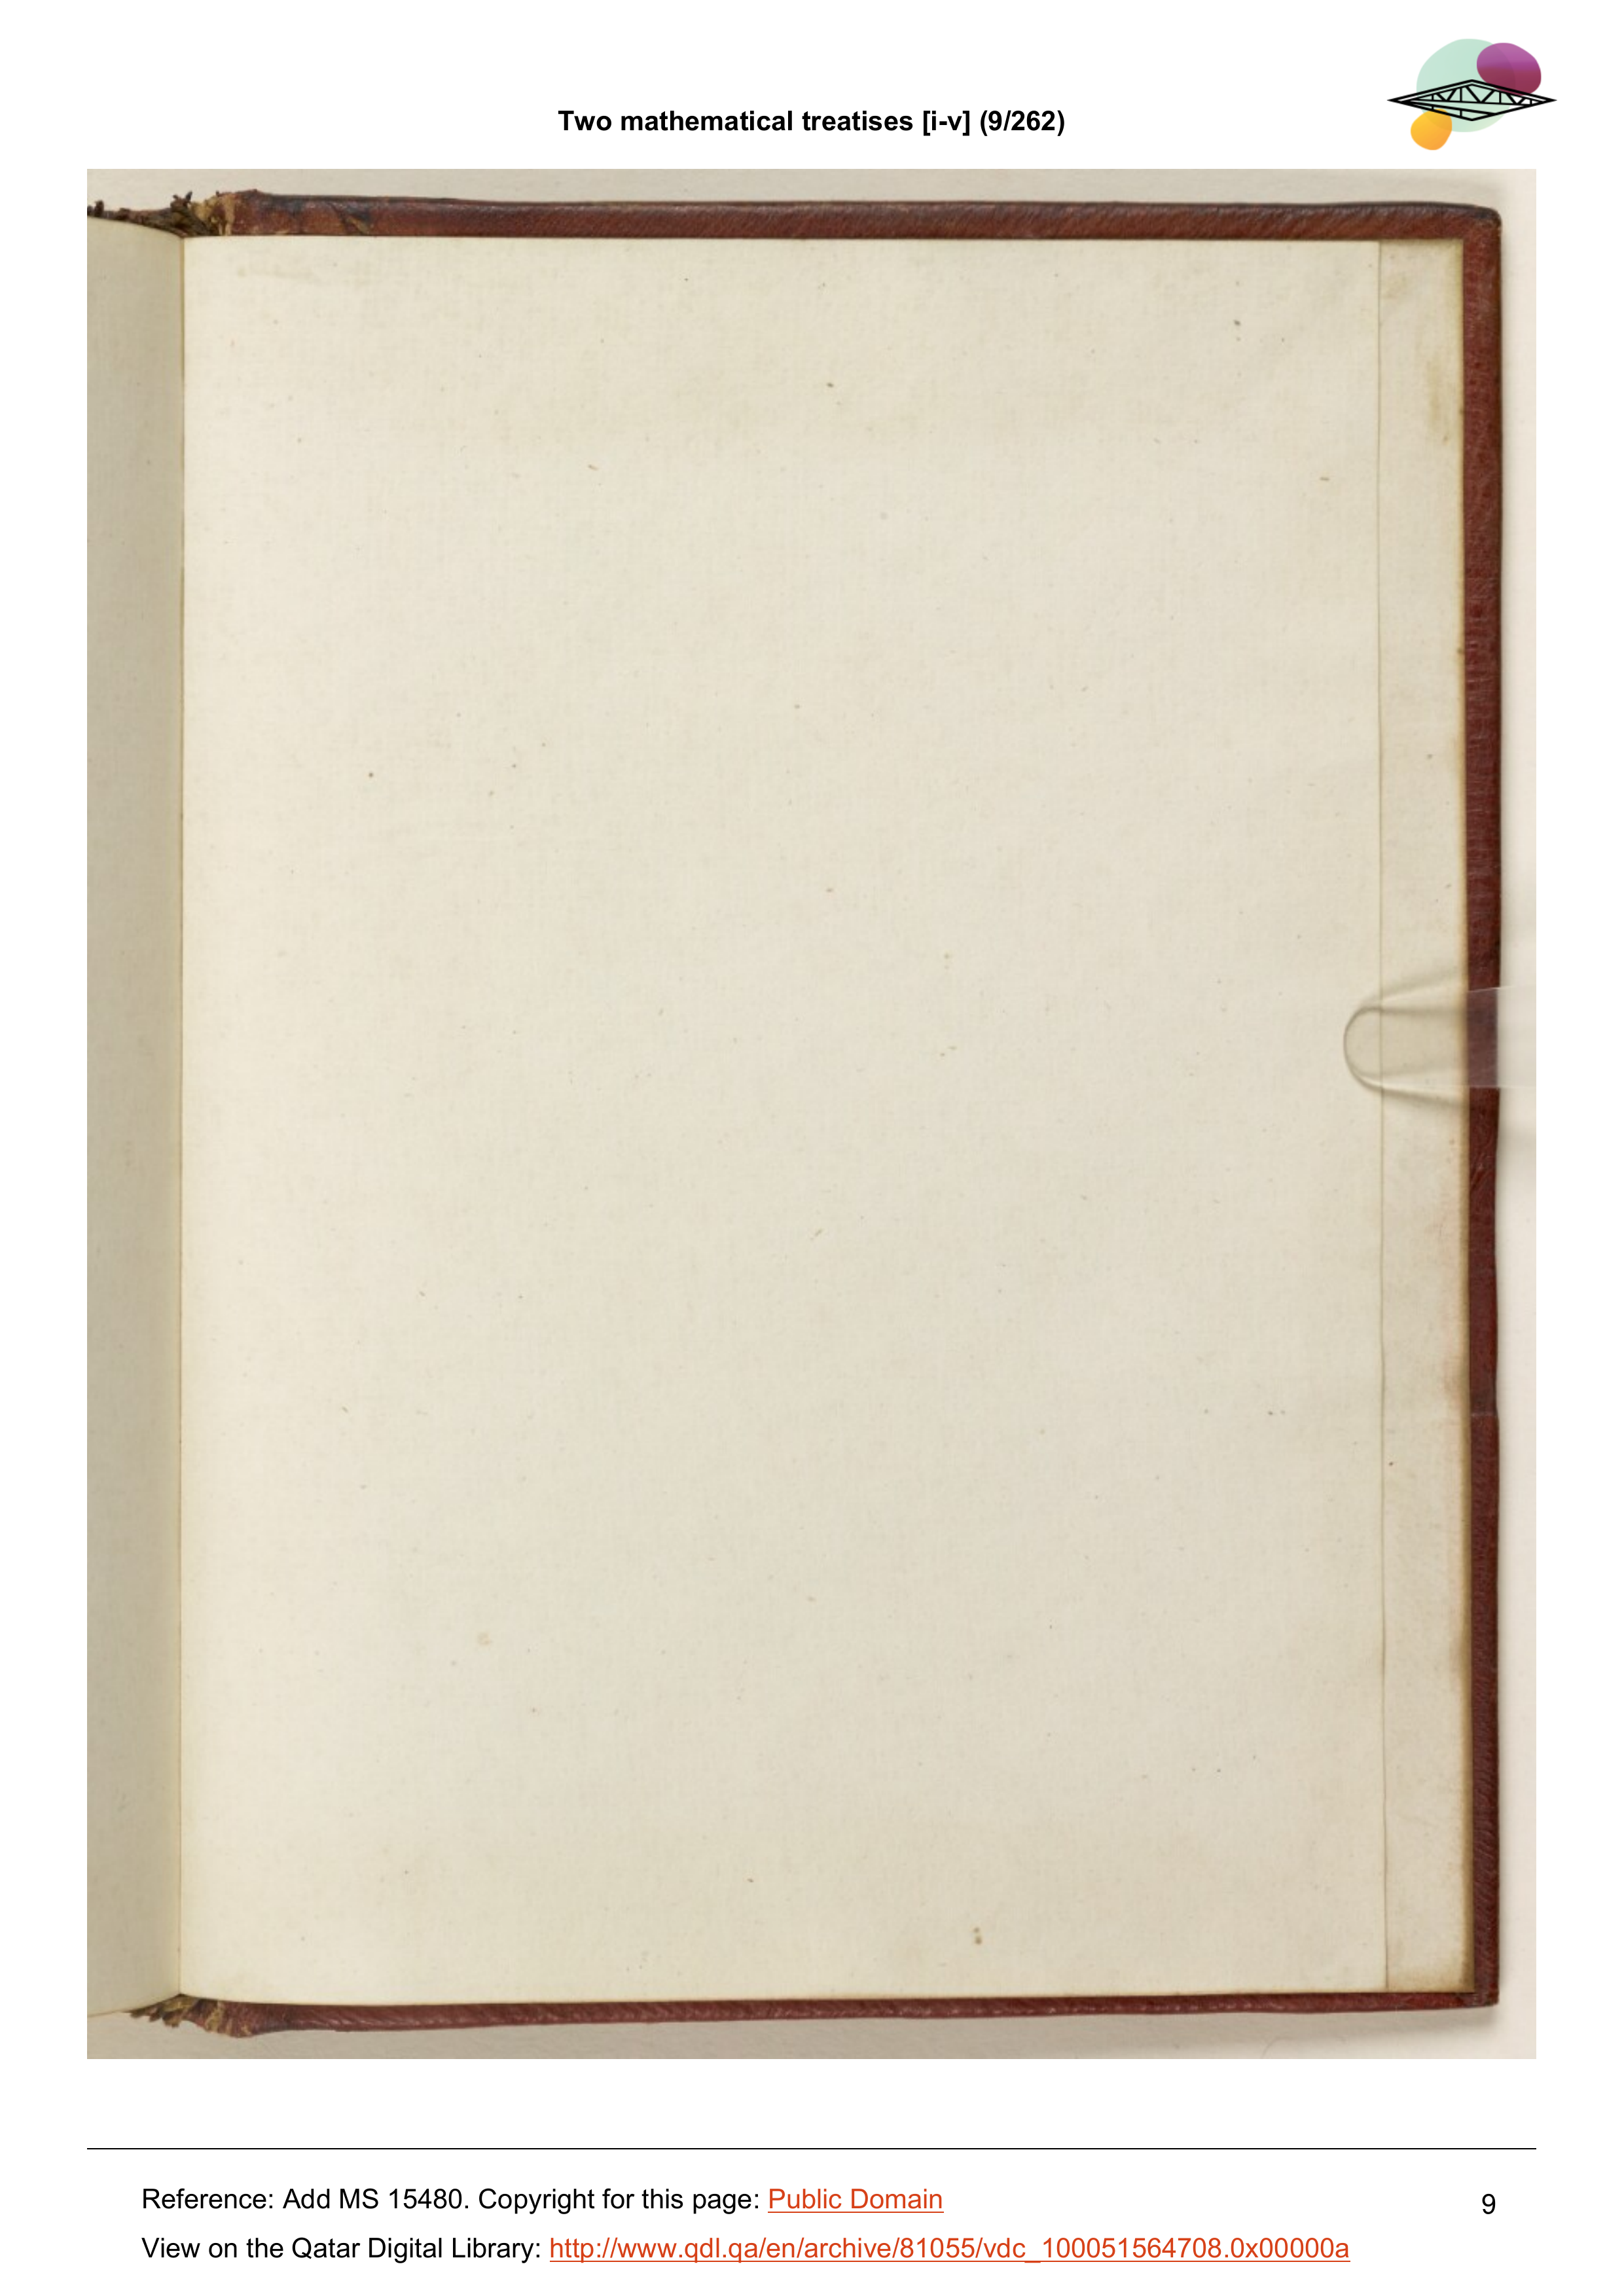 Two mathematical treatises [i-v] (9/262)
Reference: Add MS 15480. Copyright for this page: Public Domain
9
View on the Qatar Digital Library: http://www.qdl.qa/en/archive/81055/vdc_100051564708.0x00000a